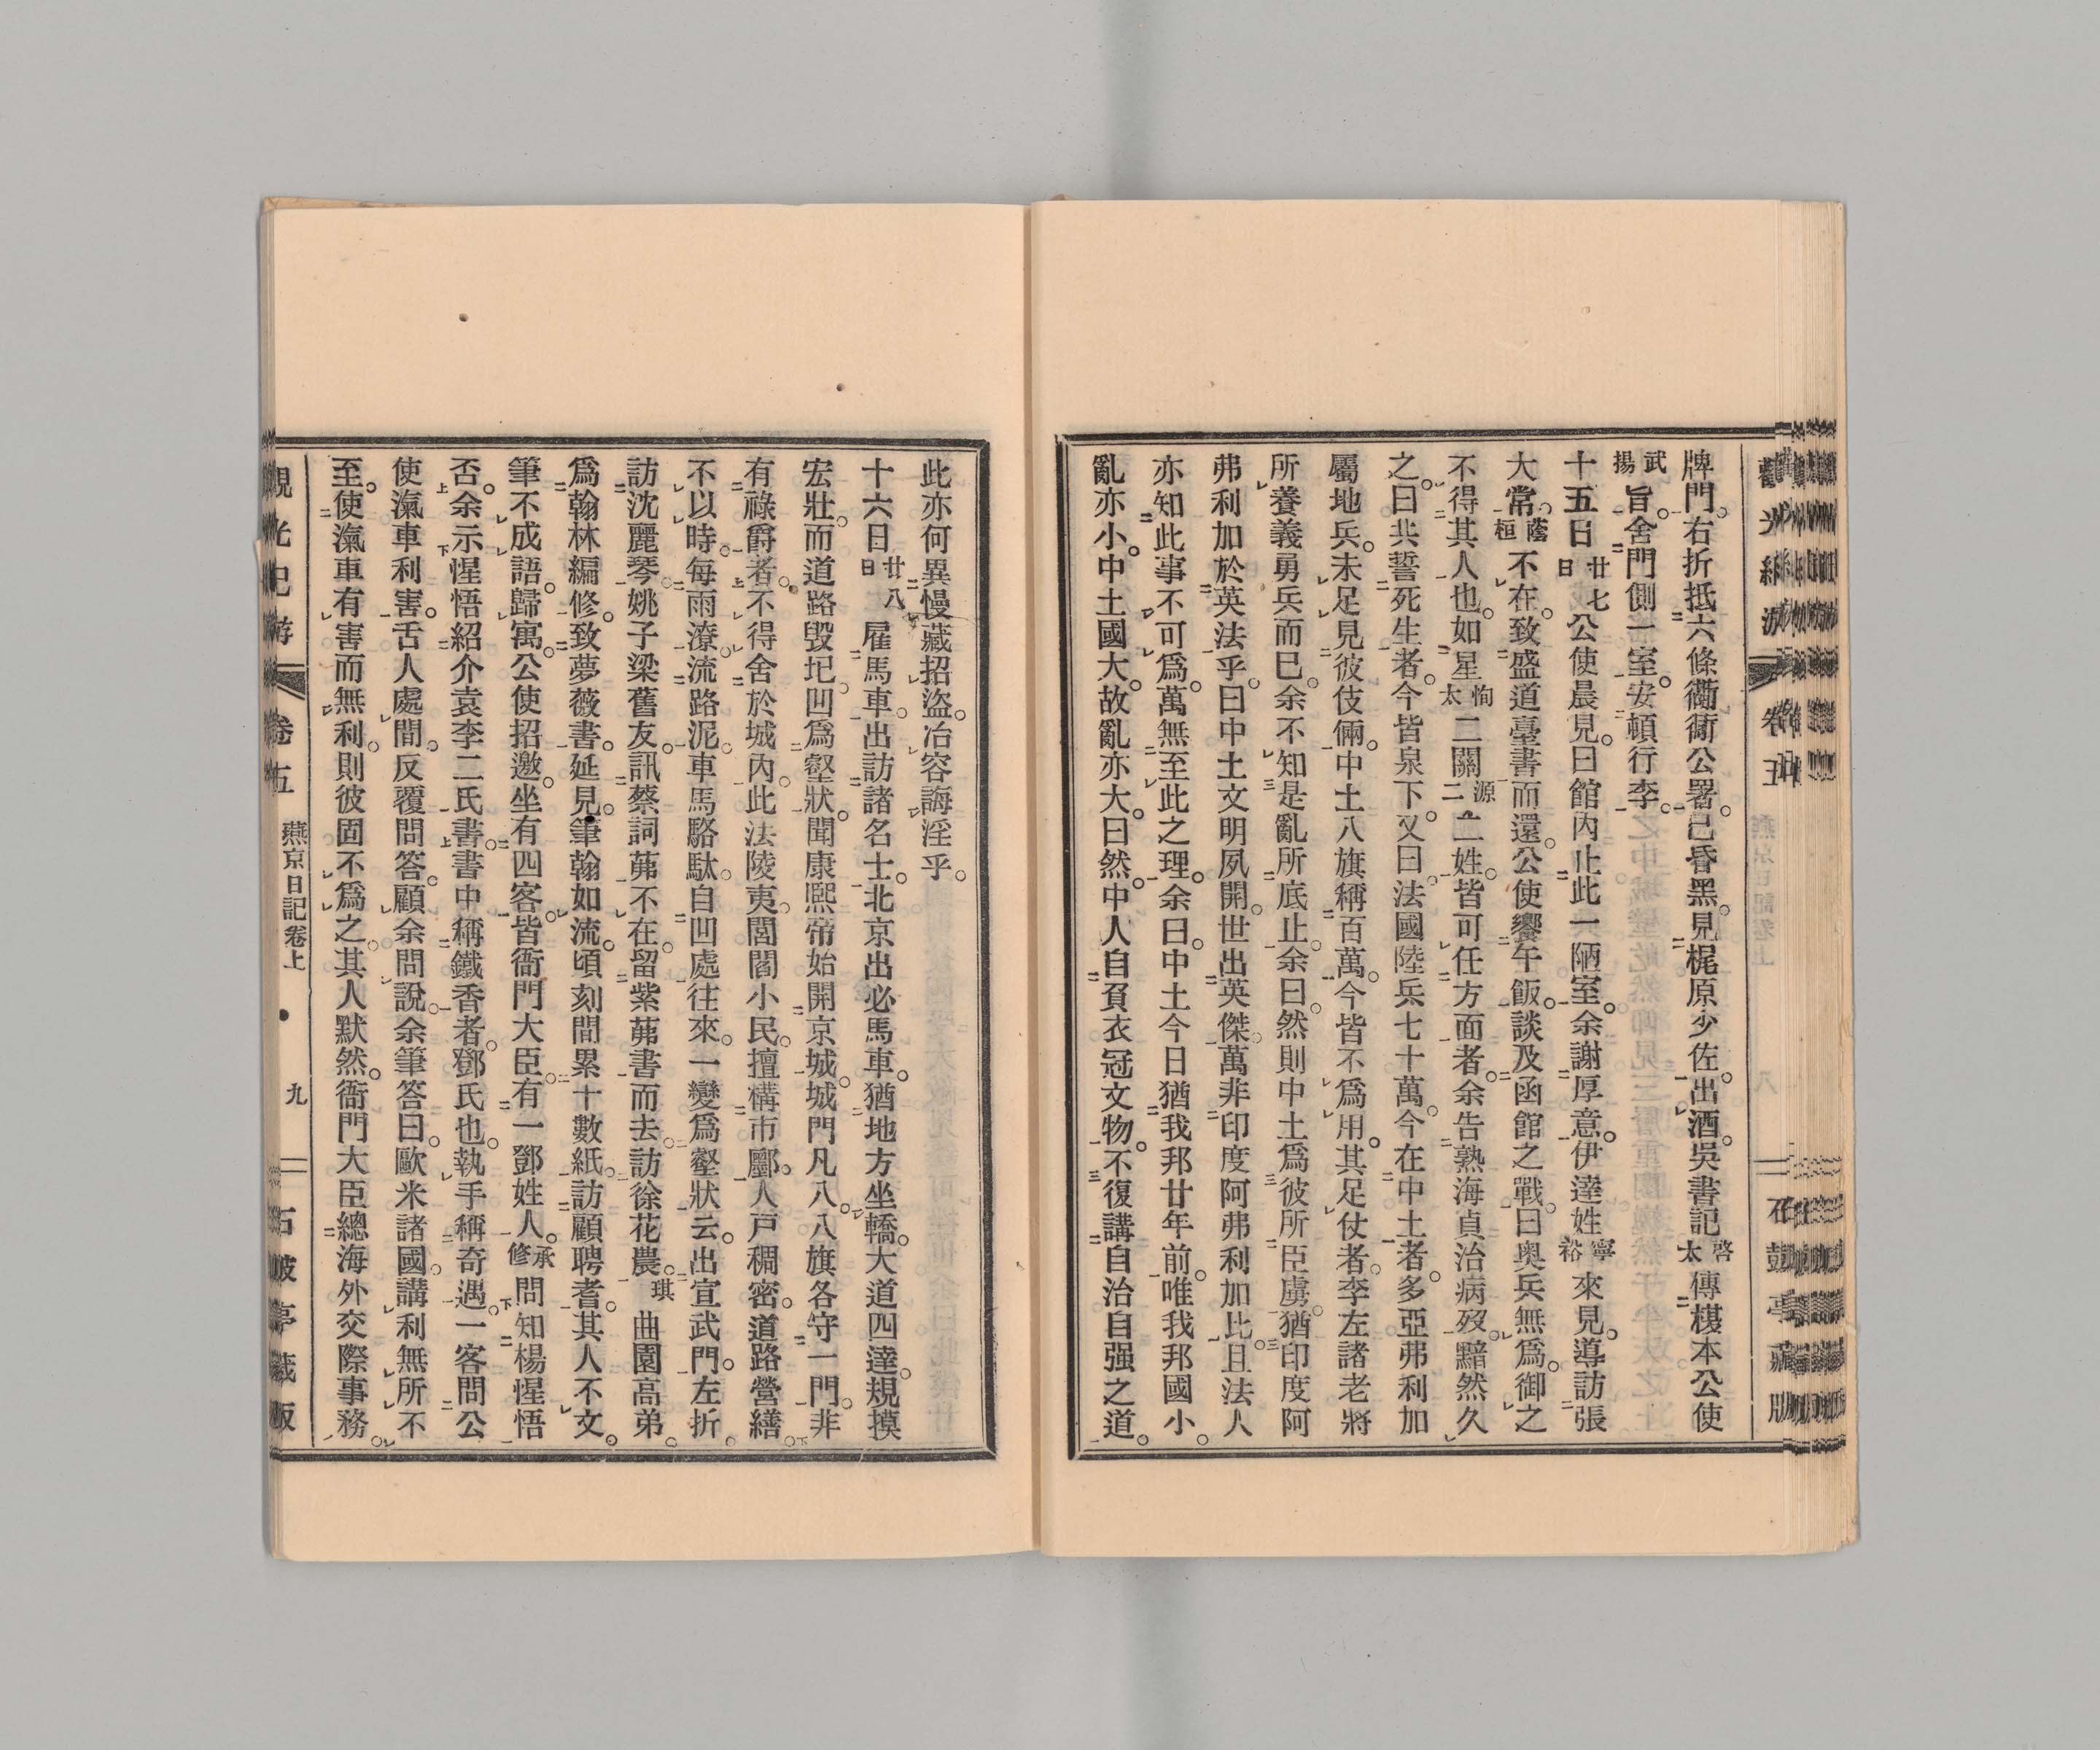 牌門。右折抵六條衚衕公署。已昏黑。見梶原少佐。出酒。吳書記啓太傳樓本公使
武揚旨。舍門側一室。安頓行李。
十五日廿七日公使晨見。曰館內止此一陋室。余謝厚意。伊達姓寧裕來見。導訪張
大常。蔭桓不在。致盛道臺書而還。公使饗午飯。談及函館之戰。曰奧兵無爲。御之
不得其人也。如星恂太二關源二二姓。皆可任方面者。余告熟海貞治病歿。黯然久
之。曰共誓死生者。今皆泉下。又曰法國陸兵七十萬。今在中土者。多亞弗利加
屬地兵。未足見彼伎倆。中土八旗稱百萬。今皆不爲用。其足仗者。李左諸老將
所養義勇兵而已。余不知是亂所底止。余曰。然則中土爲彼所臣虜。猶印度阿
弗利加於英法乎。曰中土文明夙開。世出英傑。萬非印度阿弗利加比。且法人
亦知此事不可爲。萬無至此之理。余曰。中土今日猶我邦廿年前。唯我邦國小。
亂亦小。中土國大。故亂亦大。曰然。中人自負衣冠文物。不復講自治自强之道。
此亦何異慢藏招盜。冶容誨淫乎。
十六日廿八日雇馬車。出訪諸名士。北京出必馬車。猶地方坐轎。大道四達。規摸
宏壯。而道路毀圮。凹爲壑狀。聞康熙帝始開京城。城門凡八。八旗各守一門。非
有祿爵者。不得舍於城內。此法陵夷。閭閻小民。擅構市廛。人戶稠密。道路營繕。
不以時。每雨潦。流路泥。車馬駱駄。自凹處往來。一變爲壑狀云。出宣武門。左折。
訪沈麗琴。姚子梁舊友。訊蔡詞茀。不在。留紫茀書而去。訪徐花農。琪曲園高弟。
爲翰林編修。致夢薇書。延見。筆翰如流。頃刻間累十數紙。訪顧聘耆。其人不文。
筆不成語。歸寓。公使招邀。坐有四客。皆衙門大臣。有一鄧姓人。承修問知楊惺悟
否。余示惺悟紹介袁李二氏書。書中稱鐵香者。鄧氏也。執手稱奇遇。一客問公
使瀛車利害。舌人處間。反覆問答。顧余問說。余筆答曰。歐米諸國。講利無所不
至。使瀛車有害而無利。則彼固不爲之。其人默然。衙門大臣總海外交際事務。
觀光紀游 卷五 燕京日記卷上 九 石鼓亭藏版